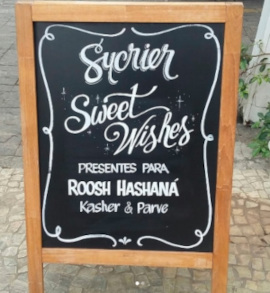 Sycrier
Sweet
Wishes
PRESENTES PARA
ROOSH HASHANÁ
Kasher & Parve